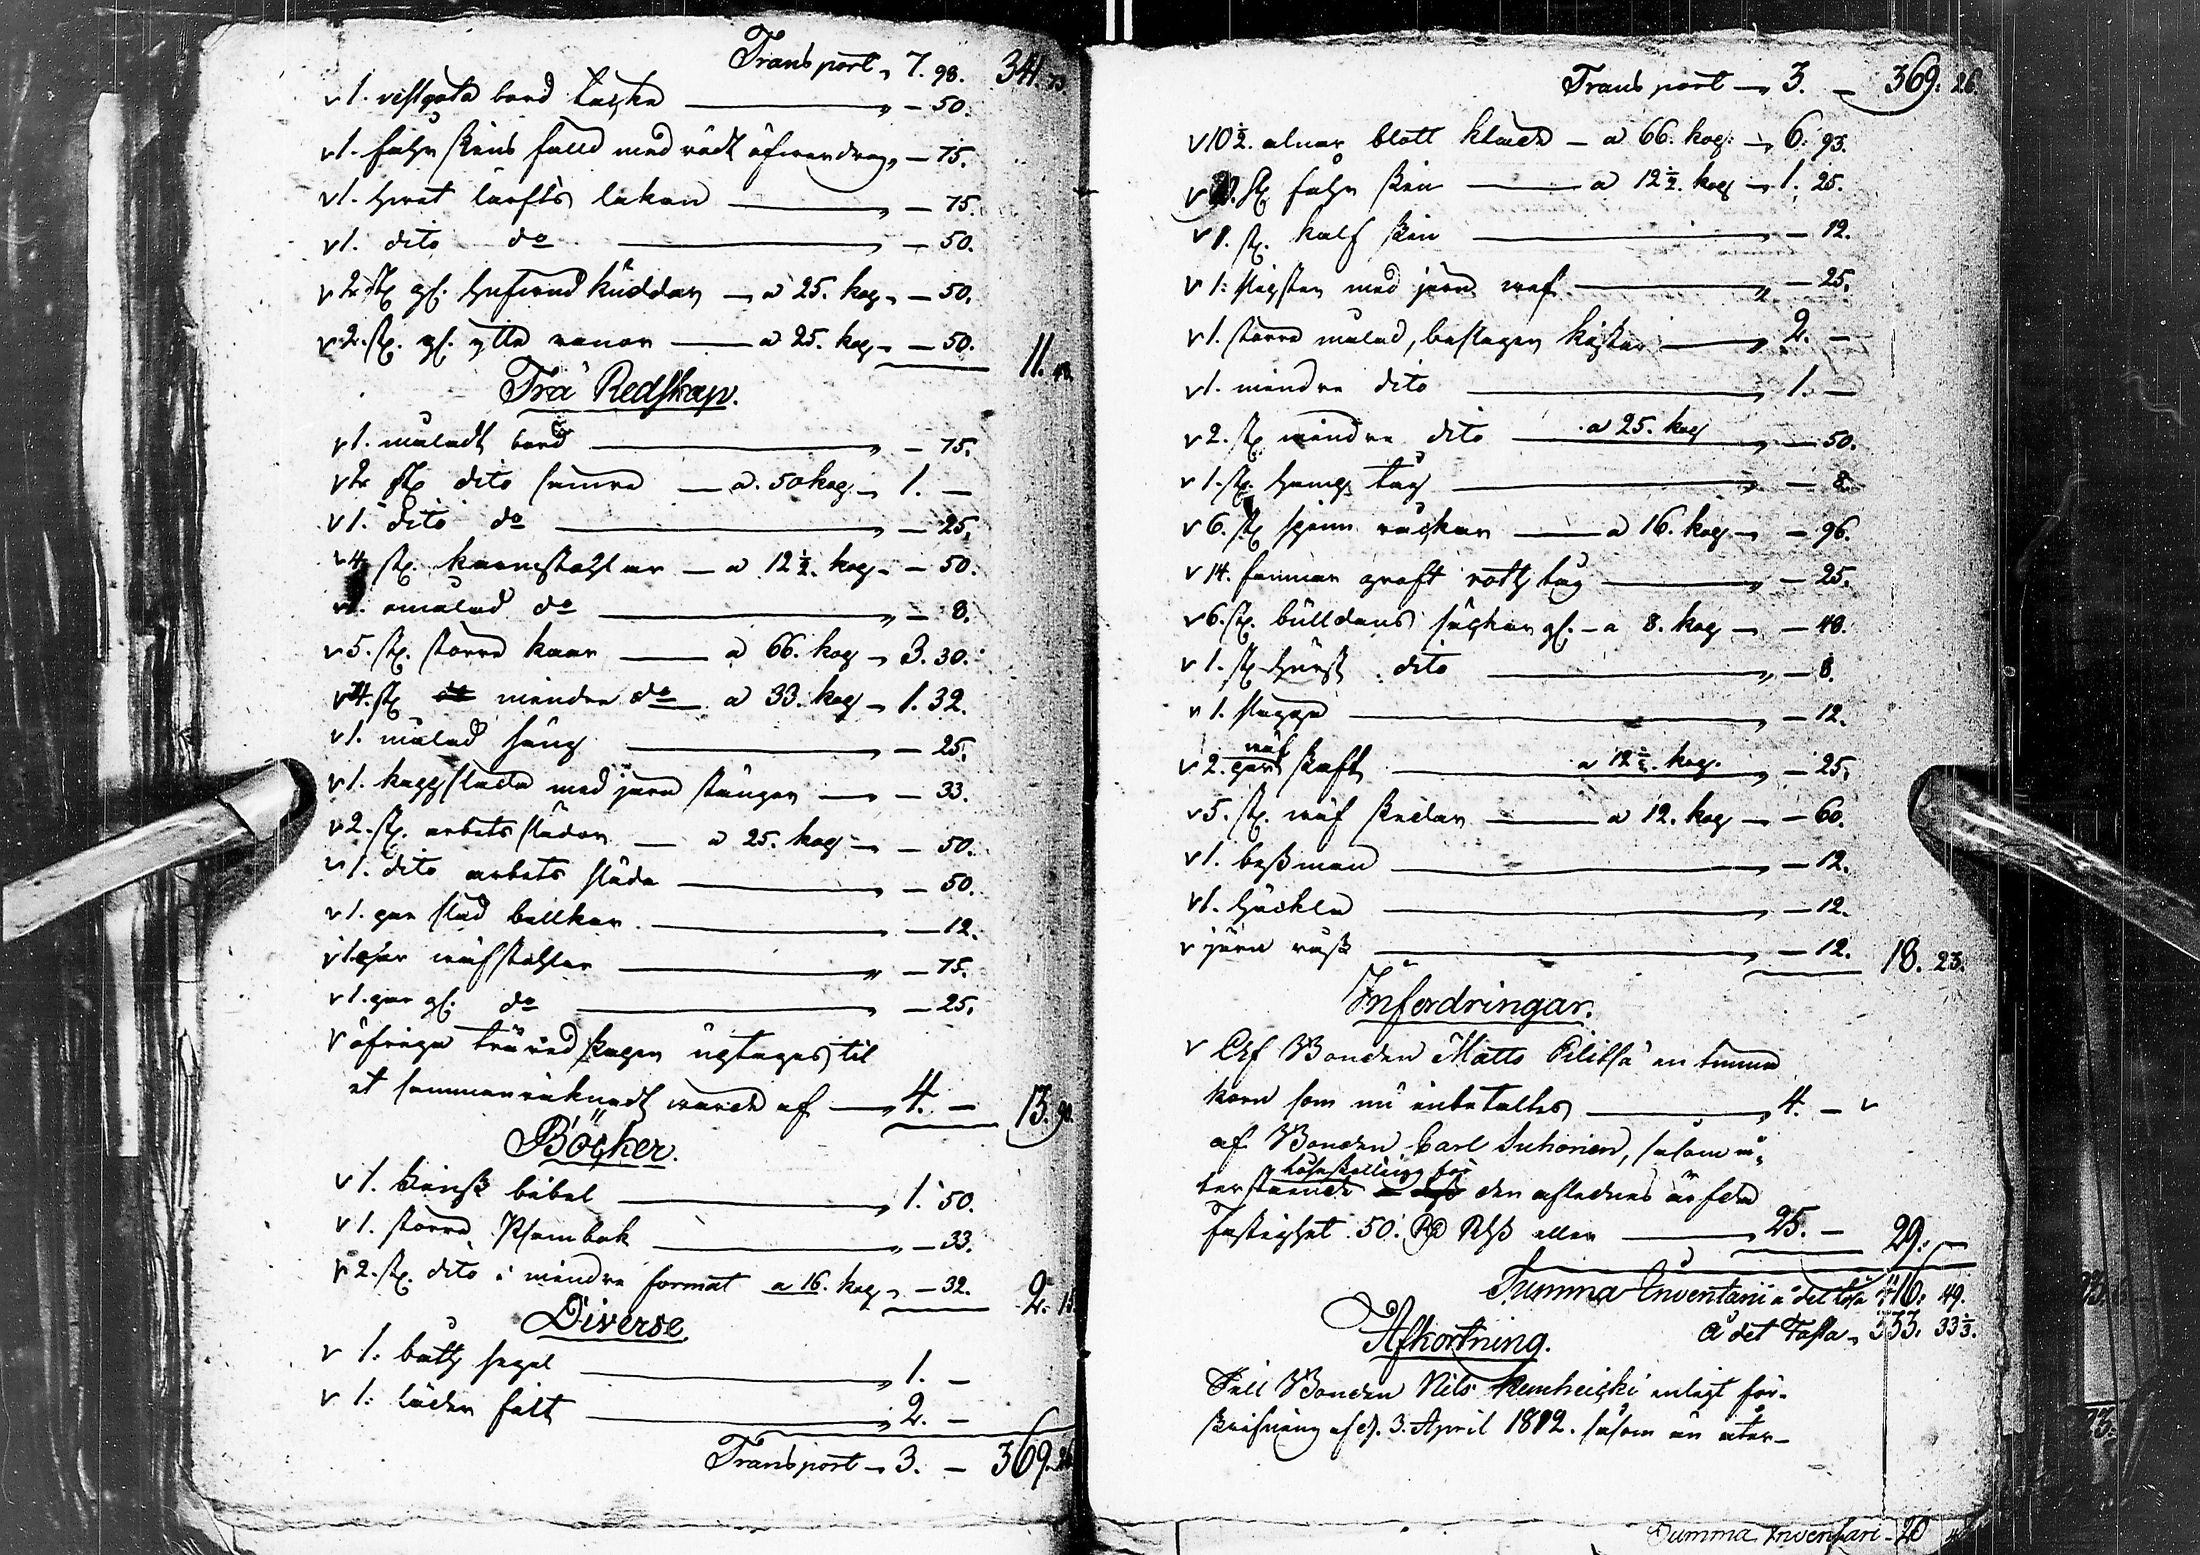 Transport 7. 98. 341. 73
v 1. västgöta bord täcke — 50.
v 1. fåhr skins fäll med rödt öfverdrag — 75.
v 1. hvit lärfts lakan — 75.
v 1. dito do — 50.
v 2. st. gl. hufvud küddar — a 25. kop. — 50.
v 2. st. gl. ylle vanor — a 25. kop. — 50. 11. 48.
Trä Redskap.
v 1. måladt bord — 75.
v 2 st. dito sämre — a. 50 kop. 1. —
v 1. dito do — 25.
v 4 st. karmstohlar — a 12½. kop. — 50.
v 1. omålad do — 8.
v 5. st. större kaar — a 66. kop. 3. 30.
v 4. st. mindre do a 33. kop. 1. 32.
v 1. målad säng — 25.
v 1. kappsläda med järn stänger — 33.
v 2. st. arbets slädar — a 25. kop. — 50.
v 1. dito arbets släda — 50.
v 1. par släd ballkar — 12.
v 1. par väfstohlar — 75.
v 1. par gl. do — 25.
v öfriga träredskapen uptages til
et sammanräknadt värde af — 4. — 13. 90.
Böcker.
v 1. Finsk bibel — 1. 50.
v 1. större Psalmbok — 33.
v 2. st. dito i mindre format a 16. kop. — 32. 2. 15
Diverse
v 1. båtz segel — 1. —
v 1. läder fält — 2. —
Transport 3. — 369. 26
Transport 3. — 369. 26.
v 10½. alnar blått kläde — a 66. kop. 6. 93.
v 10. st. fåhr skin — a 12½. kop. 1. 25.
v 1. st. kalf skin — 12.
v 1. slipsten med järn vef — 25.
v 1. större målad, beslagen kista 2. —
v 1. mindre dito 1. —
v 2. st. mindre dito a 25. kop. — 50.
v 1. st. hamp tåg — 8.
v 6. st. spinn råckar — a 16. kop. — 96.
v 14. famnar groft rottz tåg — 25.
v 6. st. bulldans säckar gl. — a 8. kop. — 48.
v 1. st. hursk dito — 8.
v 1. slagga — 12.
v 2. väf skaft a 12½. kop. — 25.
v 5. st. väf skedar — a 12. kop. — 60.
v 1. bessman — 12.
v 1. häckla — 12.
v järn rask — 12. 18. 23.
Infordringar.
v Af Bonden Matts Pilitsä en tunna
korn som nu inbetaltes — 4. — v
af Bonden Carl Suhoinen, såsom å-
terstående löseskilling för den afledna ärfda
Fastighet 50. Rd Rgs eller 25. — 29. —
Summa Inventarii a det lösa 416. 49.
a det Fasta 333. 33⅓.
Afkortning.
Till Bonden Nils Kemheicki enligt för-
skrifning af d. 3. April 1812. såsom än åter-
Summa Inventari 20